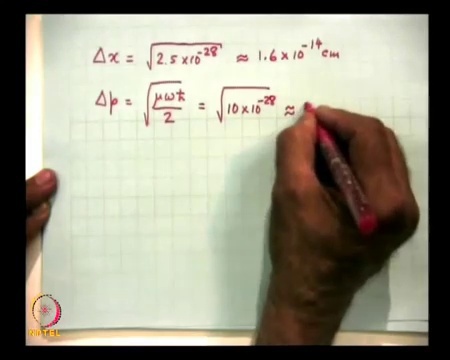 Δx = √2.5 x 10⁻²⁸ ≈ 1.6 x 10⁻¹⁴ cm
Δp = √μωħ/2 = √10 x 10⁻²⁸ ≈
NPTEL